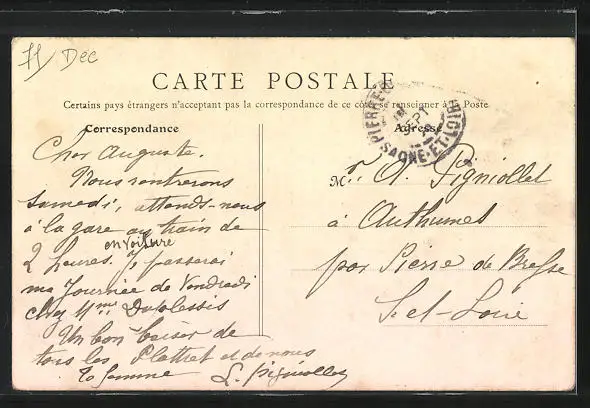 11/ Déc
CARTE POSTALE
Certains pays étrangers n'acceptant pas la correspondance de ce côté se renseigner à la Poste
Correspondance
Adresse
PIERRE SAONE-ET-LOIRE
Cher Auguste.
Nous rentrerons
samedi, attends-nous
à la gare au train de
en voiture
2 heures. Je passerai
ma Journée de Vendredi
chez Mme Duplessis
Un bon baiser de
tous les Plattret et de nous
Ta femme L. Pigniollet
M. r. A. Pigniollet
à Authumes
par Pierre de Bresse
S. et-Loire